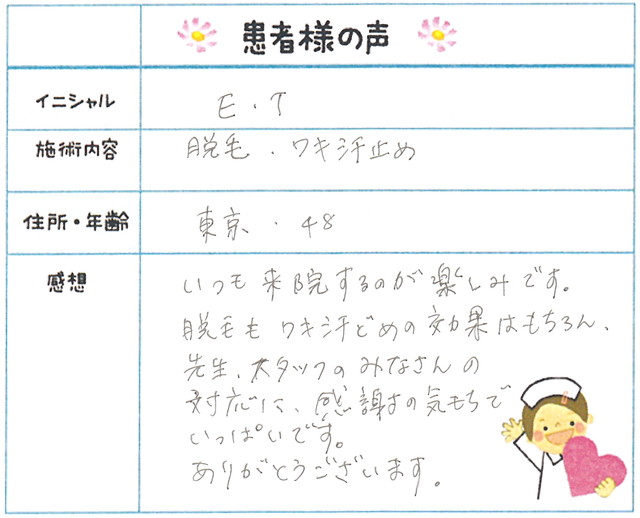 患者様の声
イニシャル
E.T
施術内容
脱毛.ワキ汗止め
住所・年齢
東京.48
感想
いつも来院するのが楽しみです。
脱毛もワキ汗どめの効果はもちろん、
先生、スタッフのみなさんの
対応に、感謝の気もちで
いっぱいです。
ありがとうございます。